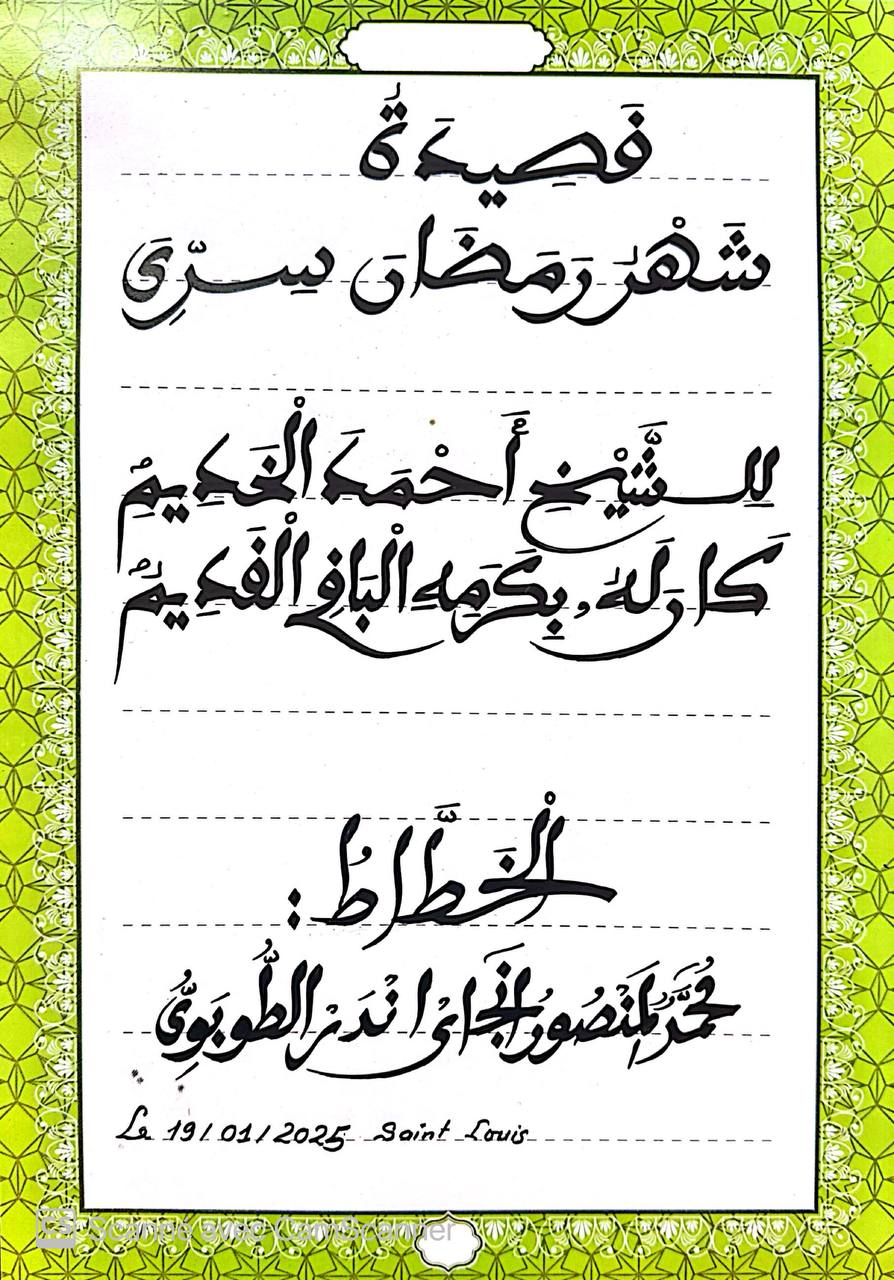 قَصِيدَةُ
شَهْرُ رَمَضَانَ سِرِّيَ
لِلشَّيْخِ أَحْمَدَ الْخَدِيمِ
كَانَ لَهُ، بِكَرَمِهِ الْبَاقِي الْقَدِيمُ
الْخَطَّاطُ :
مُحَمَّدُ لْمَنْصُورُ انْجَاىْ انْدَرْ الطُّوبَوِيُّ
Le 19/01/2025 Saint Louis
CS Scanné avec CamScanner